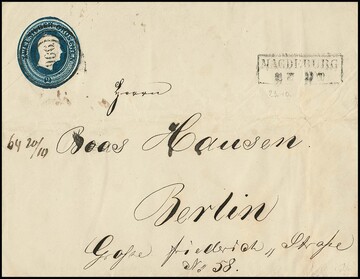 MAGDEBURG
Herrn
64 20/10
Boas Hausen.
Berlin
Große Friederich Straße
No 58.